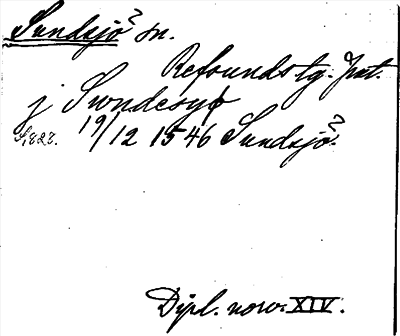 Sundsjö? sn.
Refsunds tg. Jmt.
j Swndesyø
S. 828. 19/12 1546 Sundsjö?
Dipl. norv. XIV.